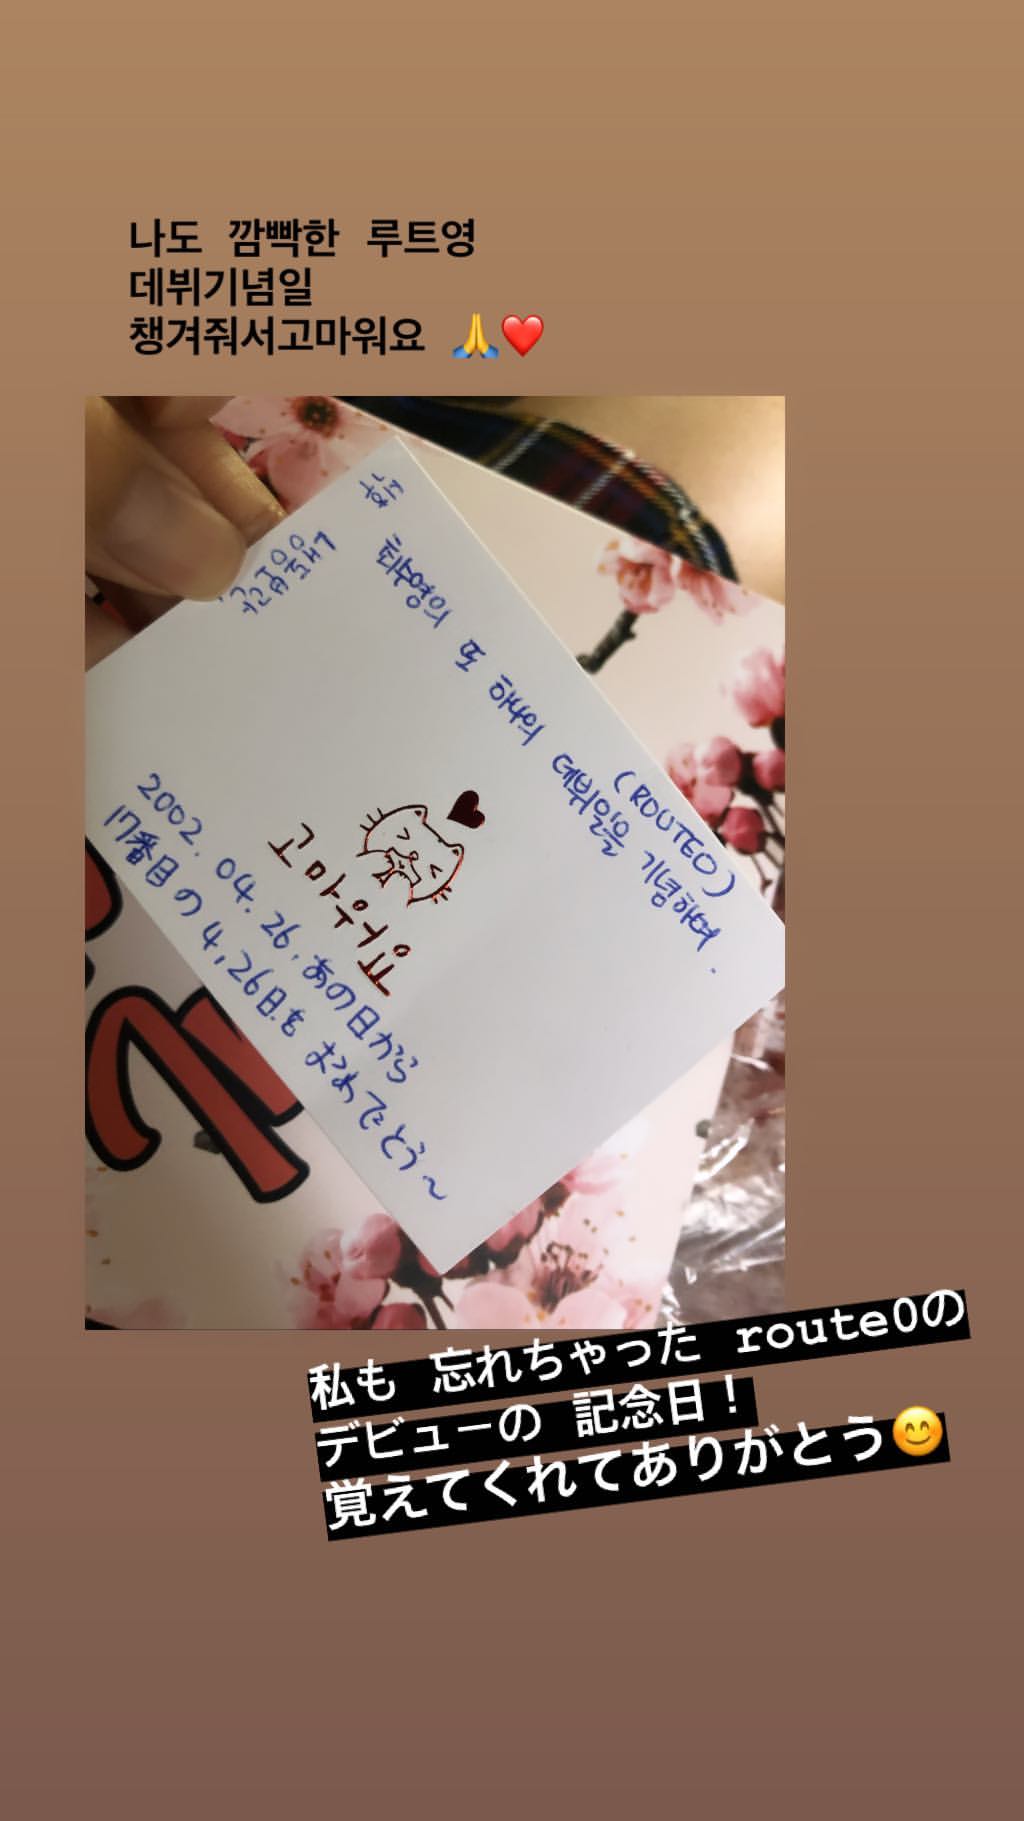 나도 깜빡한 루트영
데뷔기념일
챙겨줘서고마워요 🙏❤️
최수영의 또 하나의 데뷔일을 기념하여.
(ROUTE0)
고마워요
2002. 04. 26. あの日から
17番目の 4,26日も おめでとう~
私も 忘れちゃった route0の
デビューの 記念日！
覚えてくれてありがとう😊